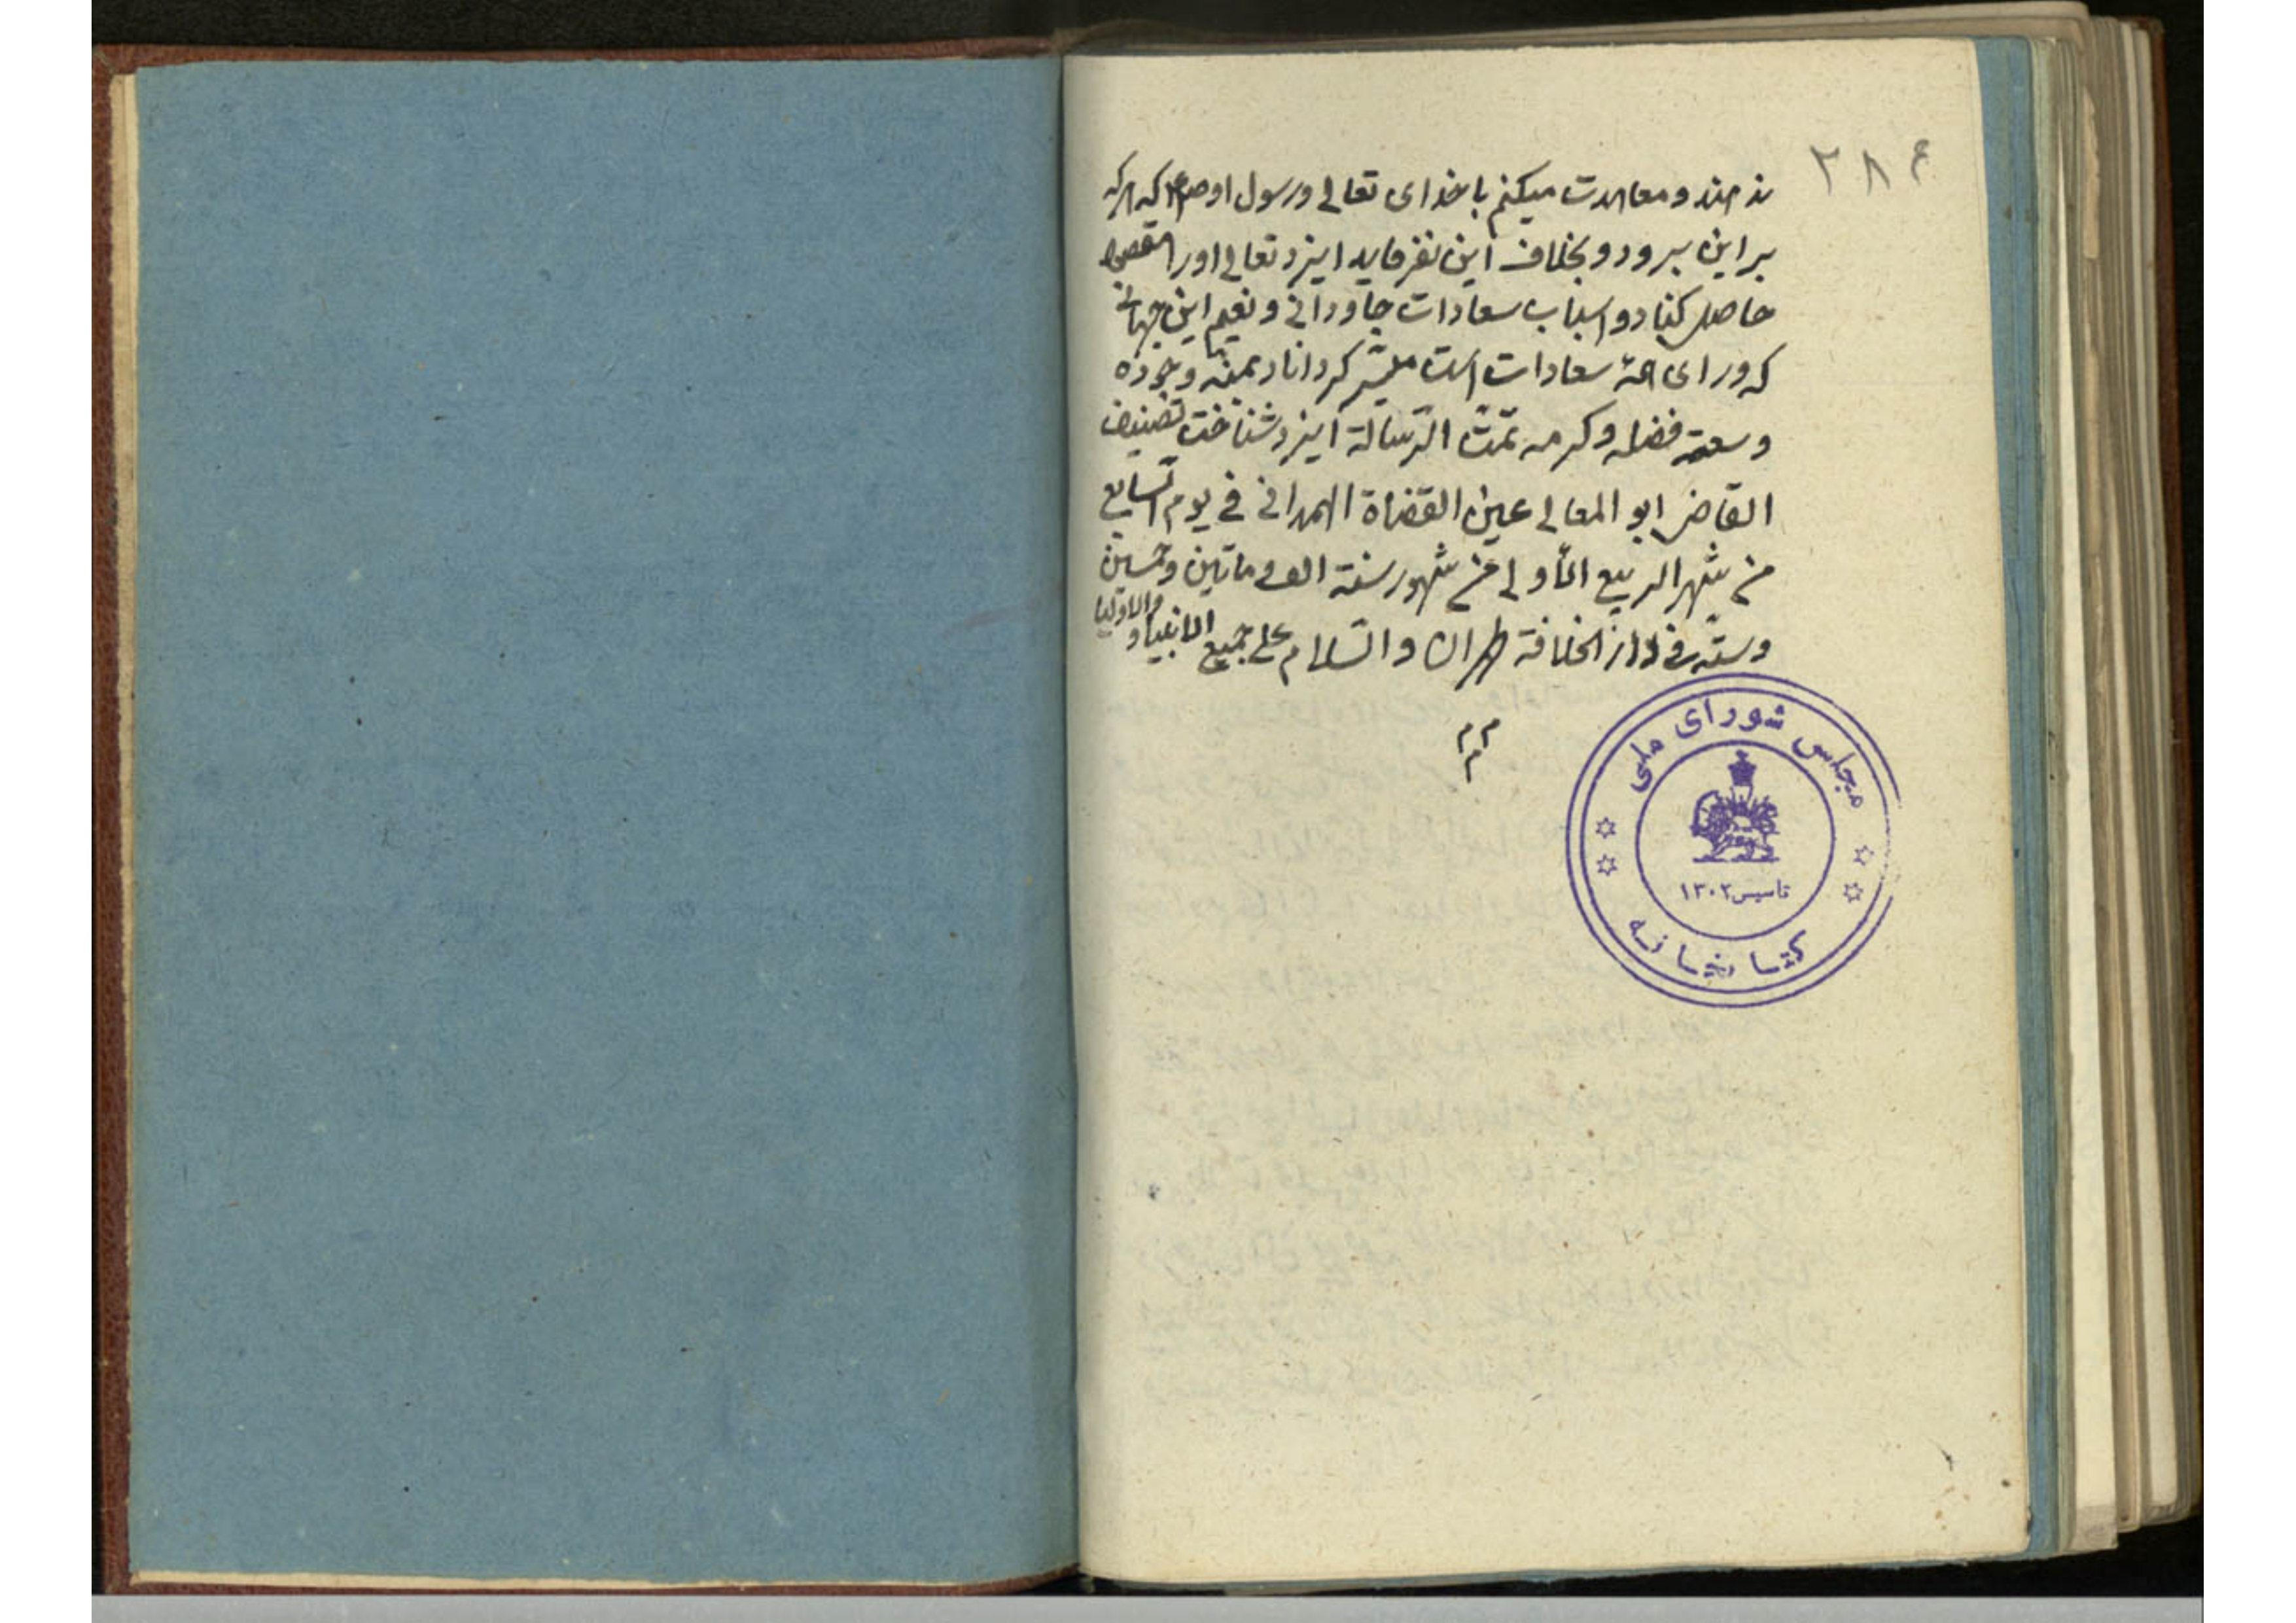 ۲۸۴
ند هند و معاهدت میکنم با خدای تعالی و رسول او صلعم که هر که
بر این برود و بخلاف این نفرماید ایزد تعالی او را مقصود
حاصل کناد و اسباب سعادات جاودانی و نعیم این جهانی
که ورای همۀ سعادات است میسّر کرداناد بمنّه وجوده
وسعة فضله وکرمه تمّت الرّسالة ایزد شناخت تصنیف
القاضی ابو المعالی عین القضاة الهمدانی فی یوم السّابع
من شهر الربیع الأولی من شهور سنة الف و مأتین و خمسین
و ستّه فی دار الخلافة طهران والسّلام علی جمیع الانبیاء و والاولیا
م م م
مجلس شورای ملی
تاسیس ۱۳۰۲
کتابخانه